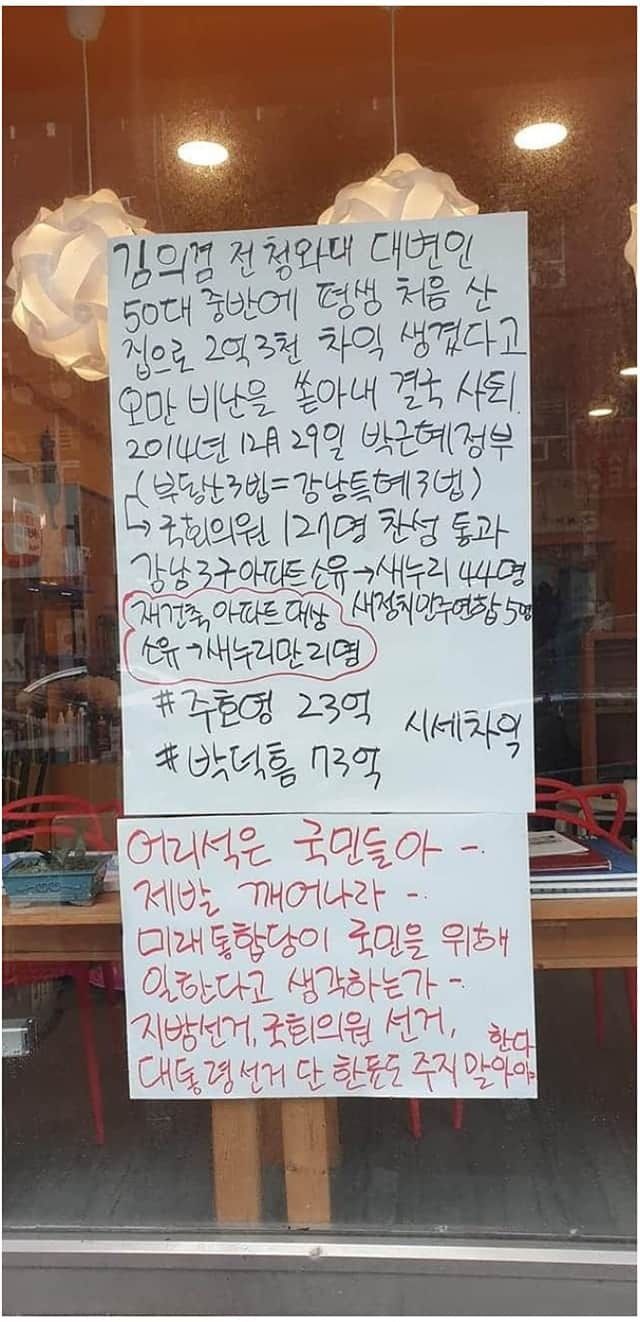 김의겸 전 청와대 대변인
50대 중반에 평생 처음 산
집으로 2억3천 차익 생겼다고
오만 비난을 쏟아내 결국 사퇴.
2014년 12月 29일 박근혜정부
(부동산3법=강남특혜3법)
↳ 국회의원 127명 찬성 통과
강남3구아파트소유→새누리 44명
새정치민주연합 5명
재건축 아파트 대상
소유→새누리만 21명
#주호영 23억
#박덕흠 73억
시세차익
어리석은 국민들아 -.
제발 깨어나라 -.
미래통합당이 국민을 위해
일한다고 생각하는가 -.
지방선거, 국회의원 선거,
대통령선거 단 한표도 주지 말아야.
한다